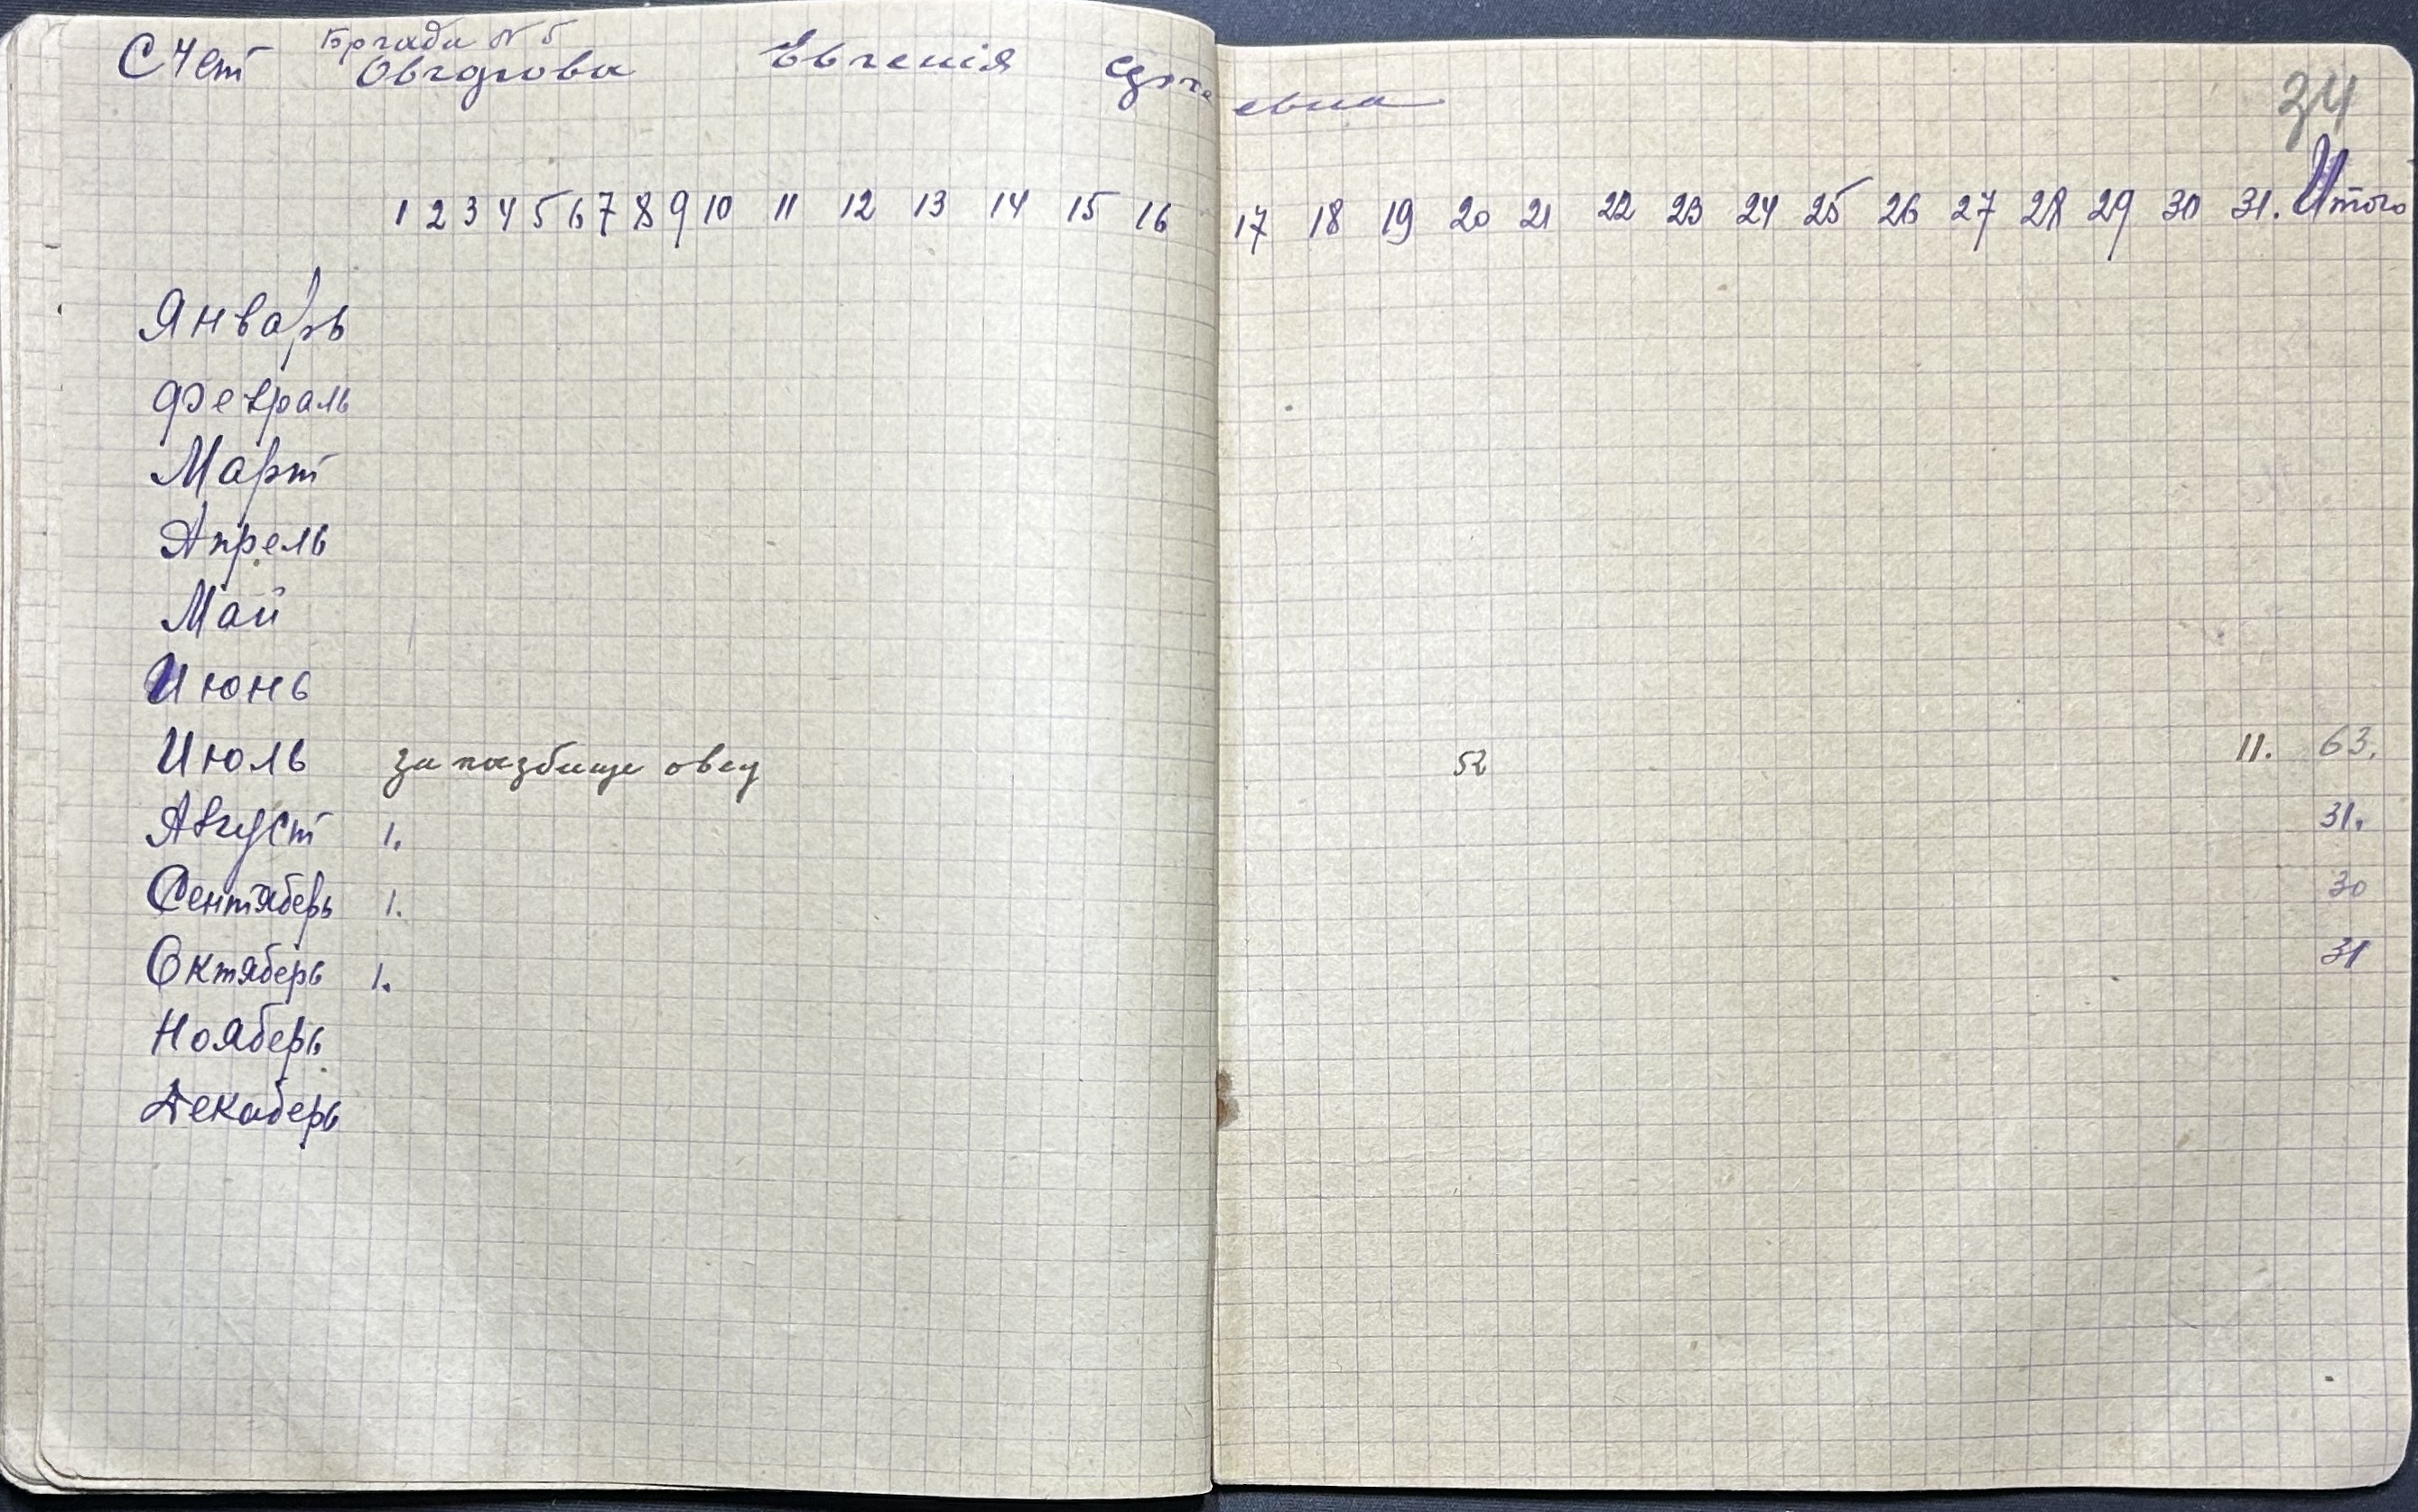 Бргада № 5
Счет Евгенія евна
34
1 2 3 4 5 6 7 8 9 10 11 12 13 14 15 16 17 18 19 20 21 22 23 24 25 26 27 28 29 30 31. Итого
Январь
Февраль
Март
Апрель
Май
Июнь
Июль за 52 11. 63.
Август 1. 31.
Сентяберь 1. 30
Октяберь 1. 31
Нояберь
Декаберь